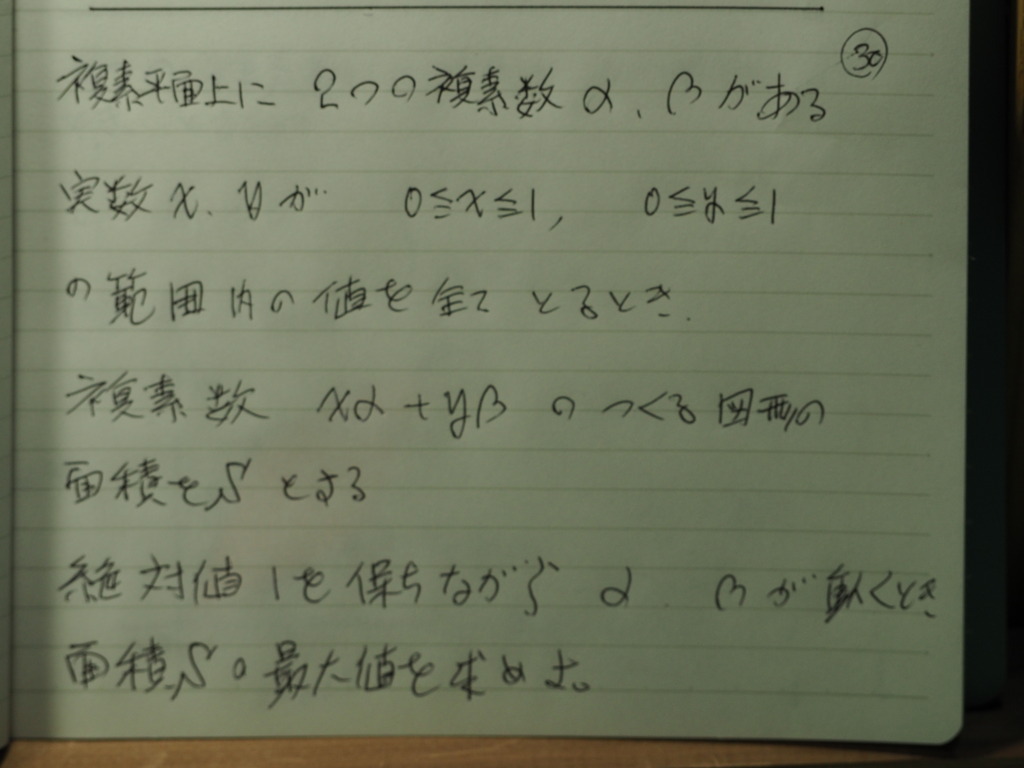 30
複素平面上に 2つの複素数 α、βがある
実数 x、yが 0≦x≦1, 0≦y≦1
の範囲内の値を全てとるとき.
複素数 xα+yβ のつくる図形の
面積をSとする
絶対値1を保ちながら α. βが動くとき
面積Sの最大値を求めよ。